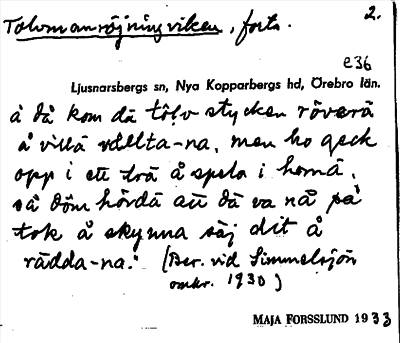 Tolvmanröjningviken, forts.
2.
e36
Ljusnarsbergs sn, Nya Kopparbergs hd, Örebro län.
å då kom dä tôlv stycken rövarä
å villä vållta-na, men ho geck
opp i ett trä å spela i hornä,
så döm hördä att dä va nå på
tok å skynna säj dit å
rädda-na." (Ber. vid Simmelsjön
omkr. 1930)
MAJA FORSSLUND 1933